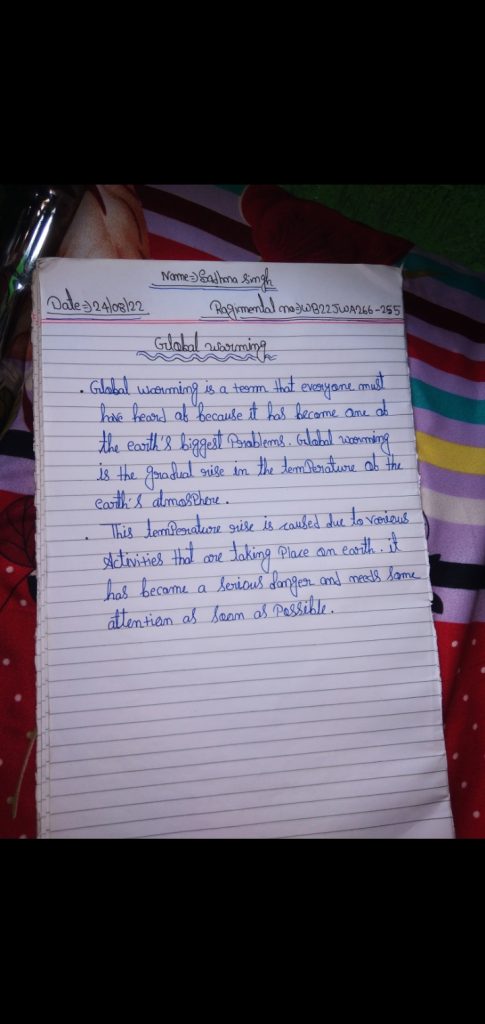 Name⇒Sashona singh
Date⇒24/08/22
Regimental no⇒WB22JWA266-255
Global warming
• Global warming is a term that everyone must
have heard of because it has become one of
the earth's biggest Problems. Global warming
is the gradual rise in the temPerature of the
earth's atmosPhere.
• This temPerature rise is caused due to various
Activities that are taking Place on earth. it
has become a serious danger and needs some
attention as soon as Possible.